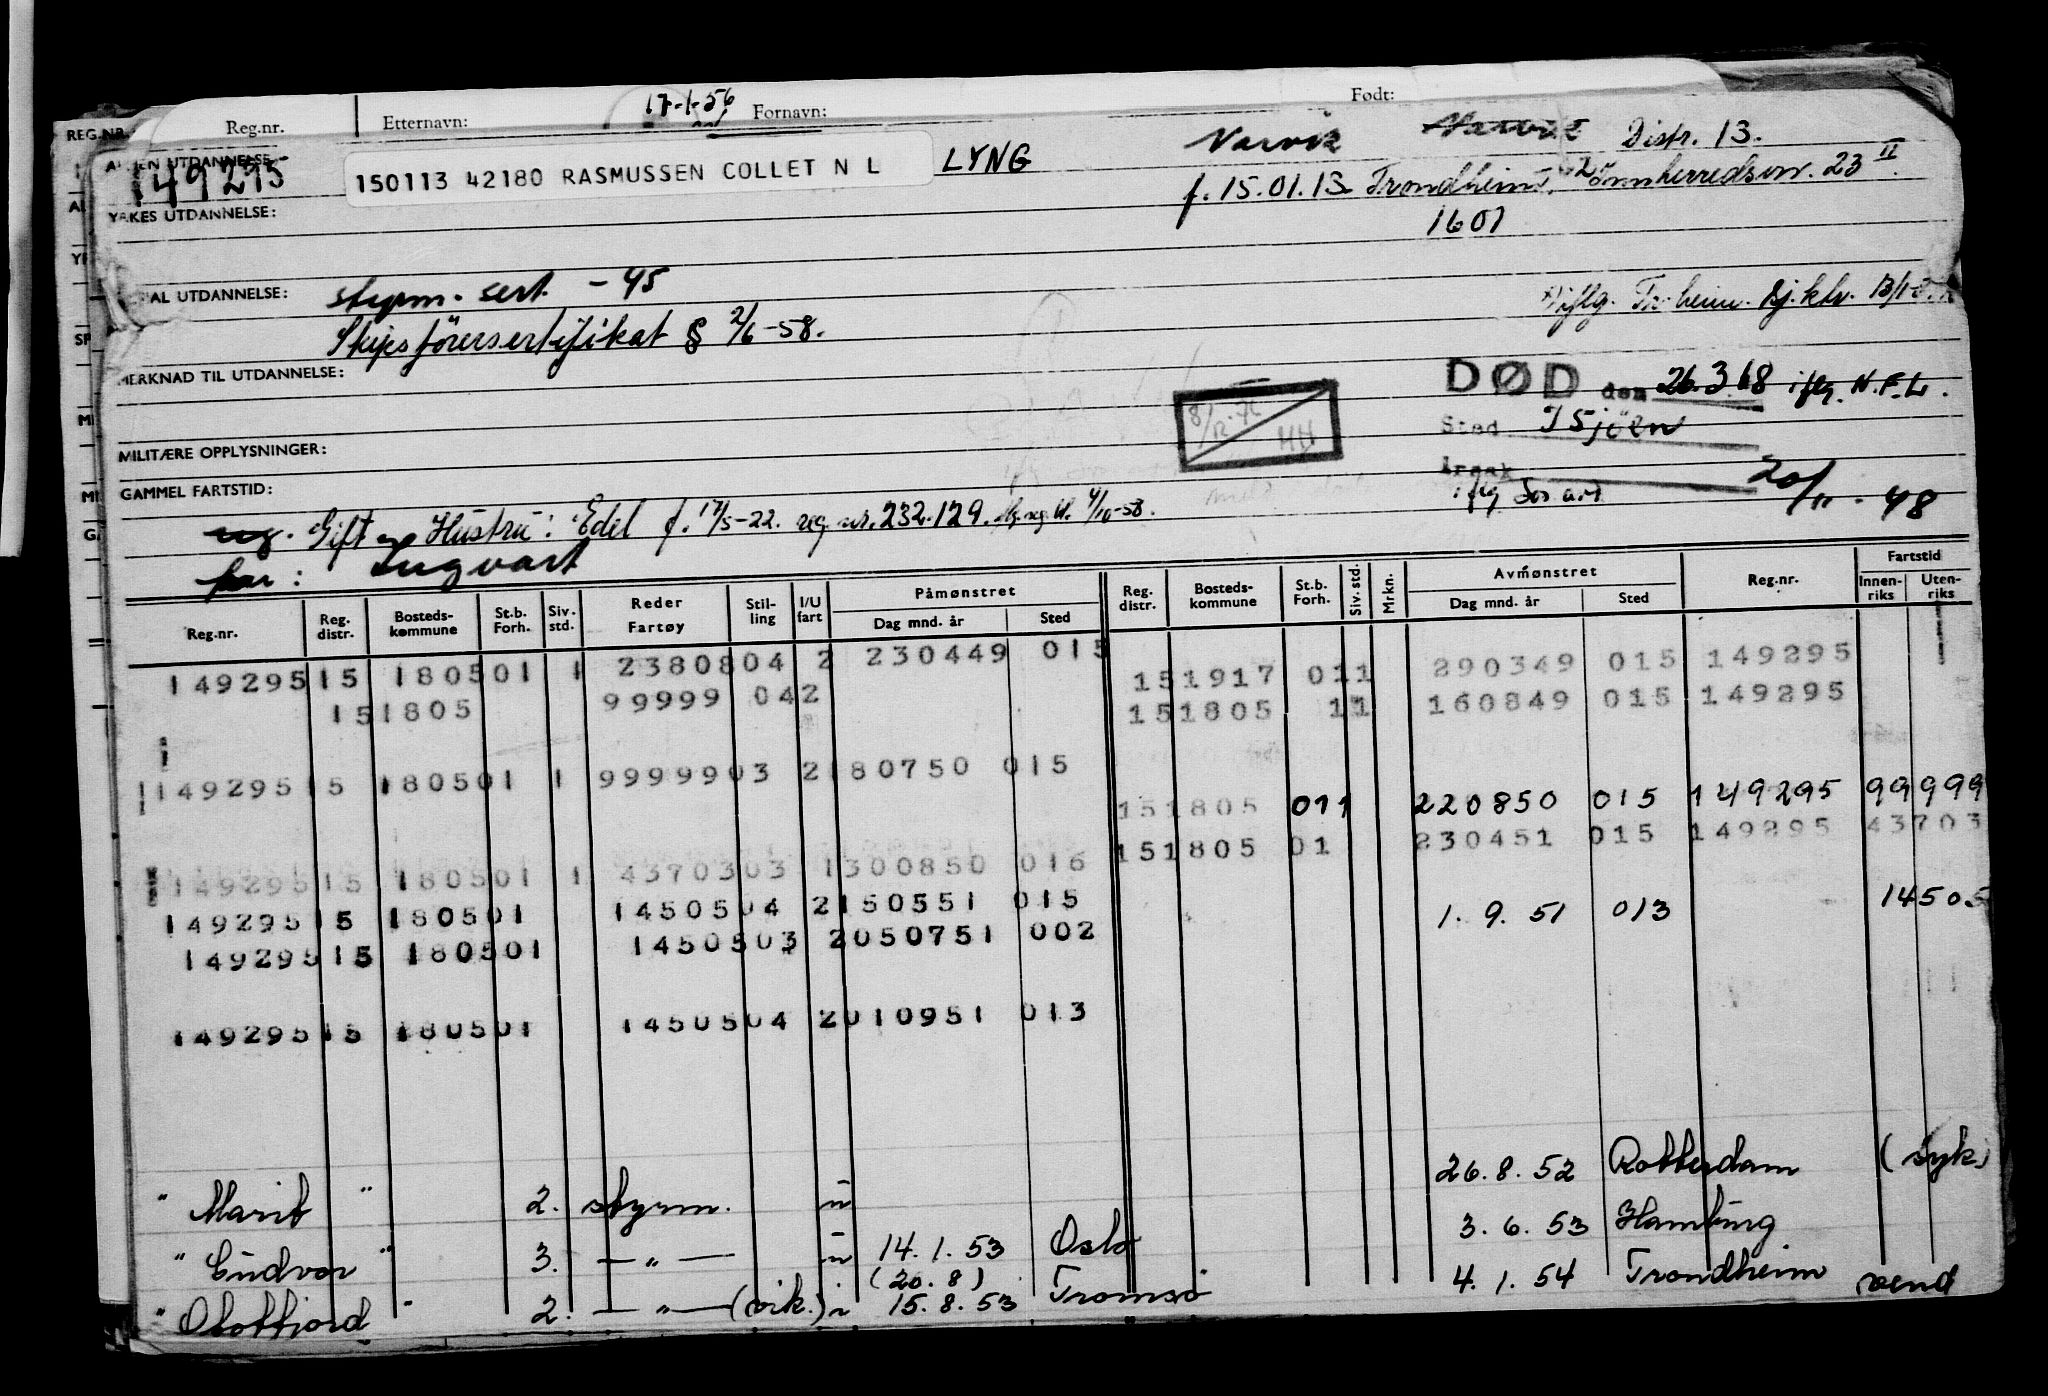 17-1-56
Reg.nr. Etternavn: Fornavn: Født:
REG.NR.
149295
150113 42180 RASMUSSEN COLLET N L LYNG
Narvik Narvik Distr. 13.
f. 15.01.13 Trondheim, Innherredsvn. 23 II
1601
YRKES UTDANNELSE:
UTDANNELSE: styrm. sert. - 45
Skipsförersertifikat § 2/6-58.
MERKNAD TIL UTDANNELSE:
8/12-76 HH
DØD den 26.3.68 iflg. N.F.L.
Sted I Sjöen
Årsak
20/11-48
MILITÆRE OPPLYSNINGER:
GAMMEL FARTSTID:
ug. Gift Hustru: Edel f. 17/5-22. reg. nr. 232.129. 4/10-58.
far: Ingvart
Reg.nr. Reg. distr. Bosteds-kommune St.b. Forh. Siv. std. Reder Fartøy Stil-ling I/U fart Påmønstret Dag mnd. år Sted Reg. distr. Bosteds-kommune St.b. Forh. Siv. std. Mrkn. Avmønstret Dag mnd. år Sted Reg.nr. Fartstid Innen-riks Uten-riks
149295 15 180501 1 2380804 2 230449 015 151917 011 290349 015 149295
151805 99999 042 151805 11 160849 015 149295
149295 15 180501 1 9999903 2180750 015 151805 011 220850 015 149295 99999
149295 15 180501 1 4370303 1300850 016 151805 01 230451 015 149295 43703
149295 15 180501 1450504 2150551 015 1. 9. 51 013 14505
149295 15 180501 1450503 2050751 002
149295 15 180501 1450504 2010951 013
" Marit " 2. styrm. u 26. 8. 52 Rotterdam (syk)
" Gudvor " 3. — " — u 14. 1. 53 Oslo 3. 6. 53 Hamburg
" Ofotfjord " 2. — " — (vik.) i (20. 8) 15. 8. 53 Tromsø 4. 1. 54 Trondheim vend